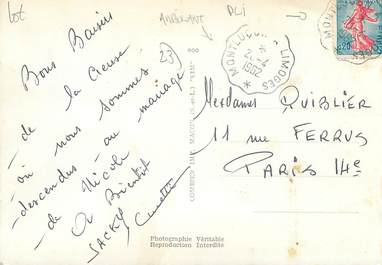 lot
AMBULANT
PLi
Bons Baisers
de la Creuse
où nous sommes
descendus au mariage
de Nicole
A Bientôt
JACKY
25
600
COMBIER IMP. MACON (S.-et-L.) "CIM"
MONTLUCON A LIMOGES
2-4
1962
Mesdames QUIBLIER
11 rue FERRUS
PARIS 14e
Photographie Véritable
Reproduction Interdite